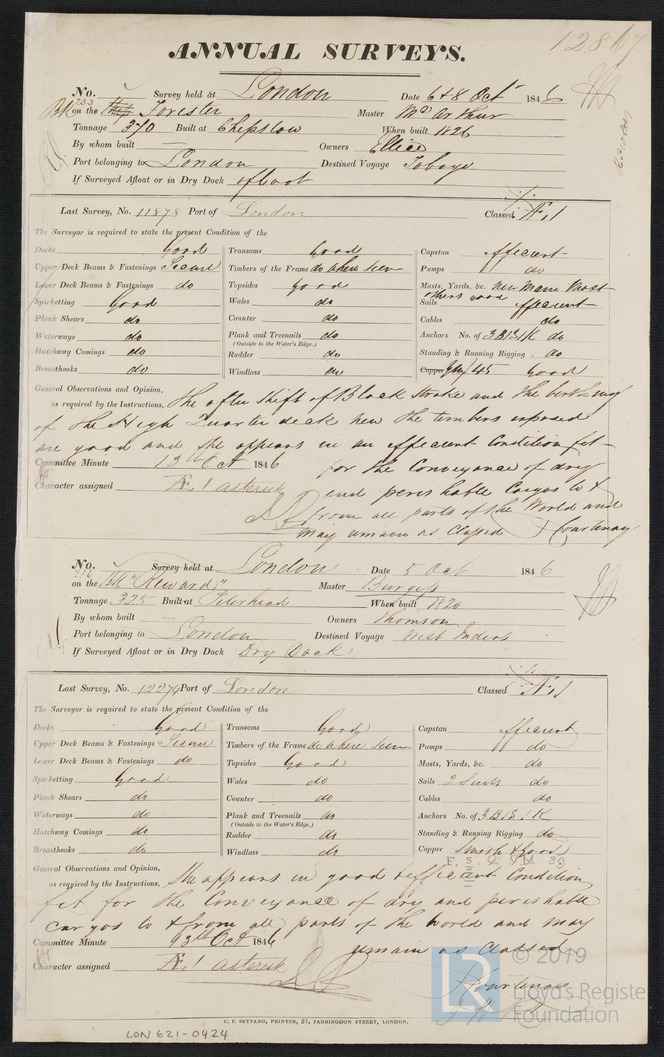 12867
ANNUAL SURVEYS.
No. 233 Survey held at London Date 6 & 8 Octr 1846
Bk on the Ship Forester Master McArthur
Tonnage 370 Built at Chepstow When built 1826
By whom built Owners Ellice
Port belonging to London Destined Voyage Tobago
If Surveyed Afloat or in Dry Dock afloat
Last Survey, No. 11878 Port of London Classed Æ.1
The Surveyor is required to state the present Condition of the
Decks Good Transoms Good Capstan efficient
Upper Deck Beams & Fastenings Secure Timbers of the Frame as where seen Pumps do
Lower Deck Beams & Fastenings do Topsides good Masts, Yards, &c. new Main Mast
others good
Spirketting Good Wales do Sails efficient
Plank Shears do Counter do Cables do
Waterways do Plank and Treenails do Anchors No. of 3B 1S 1K do
(Outside to the Water's Edge.)
Hatchway Comings do Rudder do Standing & Running Rigging do
Breasthooks do Windlass do Copper /45 Good
General Observations and Opinion,
as required by the Instructions, The after shift of Black Strake and the berthing
of the High Quarter deck new the timbers exposed
are good and she appears in an efficient Condition fit
Committee Minute 13th Oct 1846 for the Conveyance of dry
and perishable Cargos to &
Character assigned Æ.1 asterisk
from all parts of the World and
may remain as Classed J Courtenay
No. 216 Survey held at London Date 5 Oct 1846
on the Bk "Heward" Master Burgess
Tonnage 325 Built at Peterhead When built 1820
By whom built Owners Thomson
Port belonging to London Destined Voyage West Indies
If Surveyed Afloat or in Dry Dock Dry Dock
Last Survey, No. 12279 Port of London Classed Æ.1
The Surveyor is required to state the present Condition of the
Decks Good Transoms Good Capstan efficient
Upper Deck Beams & Fastenings Secure Timbers of the Frame as where seen Pumps do
Lower Deck Beams & Fastenings do Topsides Good Masts, Yards, &c. do
Spirketting Good Wales do Sails 2 Suits do
Plank Shears do Counter do Cables do
Waterways do Plank and Treenails do Anchors No. of 3B 1S 1K
(Outside to the Water's Edge.)
Hatchway Comings do Rudder do Standing & Running Rigging do
Breasthooks do Windlass do Copper & Good
General Observations and Opinion,
as required by the Instructions, She appears in good & efficient Condition
fit for the Conveyance of dry and perishable
cargos to & from all parts of the world and may
Committee Minute 13th Oct 1846 remain as Classed
Character assigned Æ.1 asterisk J Courtenay
© 2019
LR Lloyd's Register
Foundation
C. F. SEYFANG, PRINTER, 57, FARRINGDON STREET, LONDON.
LON 621-0424